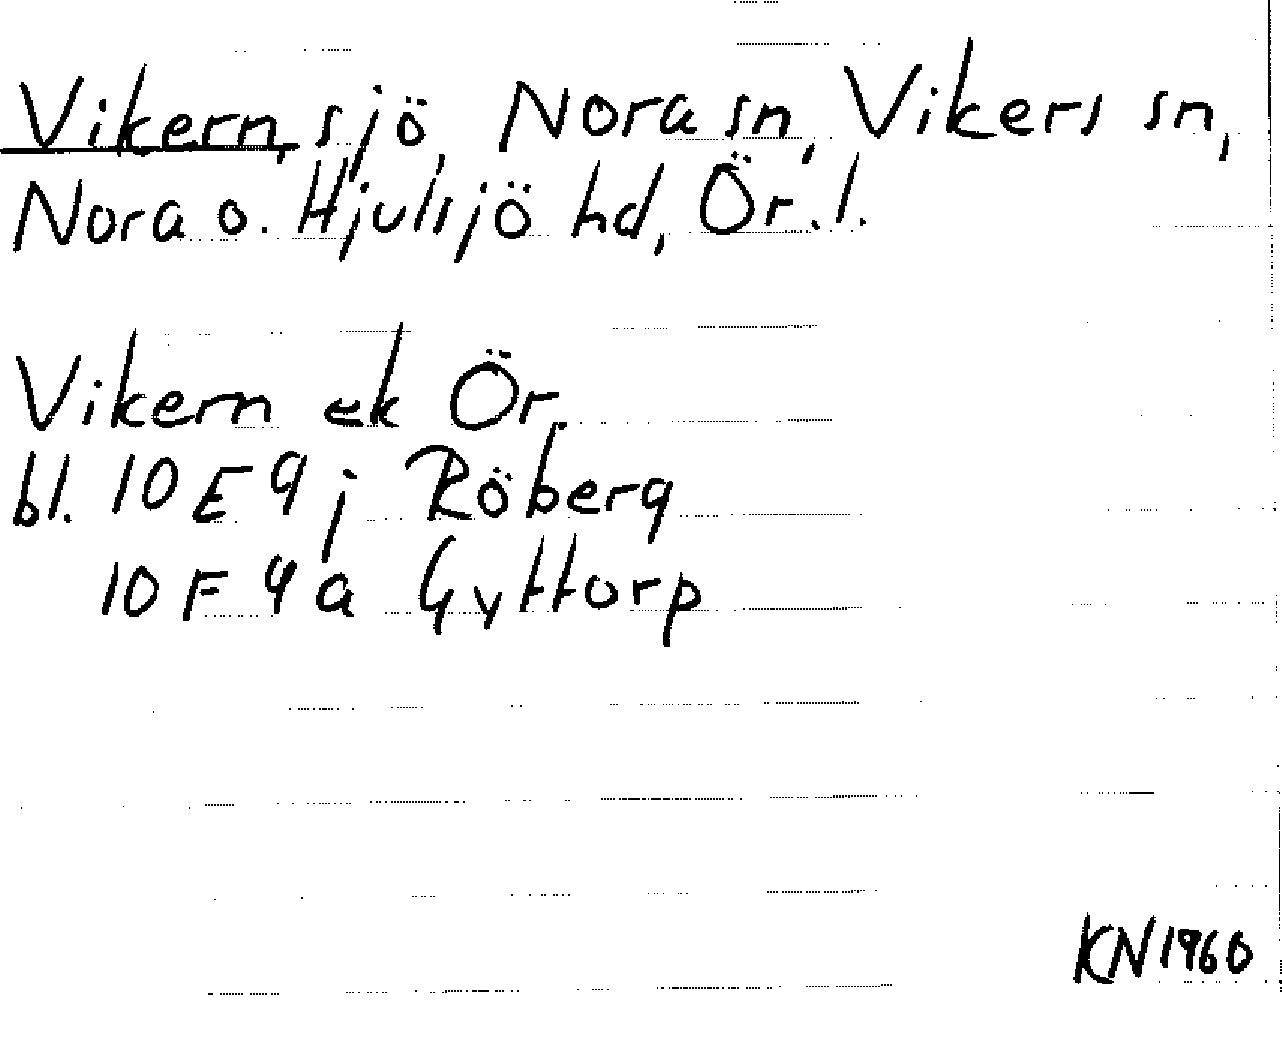 Vikern, sjö, Nora sn, Vikers sn,
Nora o. Hjulsjö hd, Ör. l.
Vikern ek Ör.
bl. 10 E 9 j Röberg
10 F 9 a Gyttorp
KN 1960